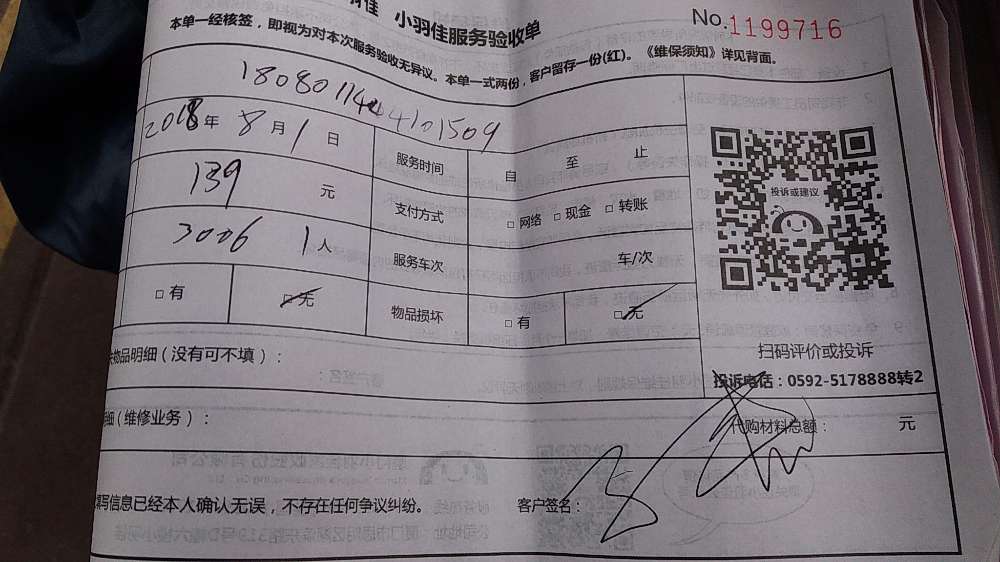 小羽佳服务验收单
No.1199716
本单一经核签，即视为对本次服务验收无异议。本单一式两份，客户留存一份(红)。《维保须知》详见背面。
2018年8月1日 服务时间 自 至 止
139 元 支付方式 □ 网络 □ 现金 □ 转账
3006 1人 服务车次 车/次
□ 有 □ 无 物品损坏 □ 有 □ 无
投诉或建议
扫码评价或投诉
投诉电话：0592-5178888转2
物品明细（没有可不填）：
（维修业务）： 代购材料总额： 元
填写信息已经本人确认无误，不存在任何争议纠纷。 客户签名：